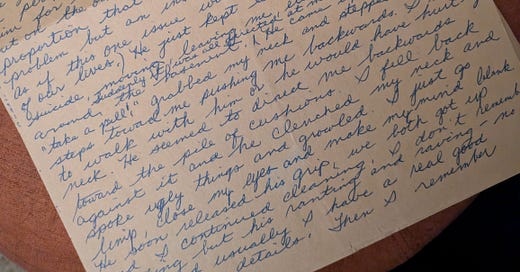 out on the
proportion that an
problem but an
as if this one issue
of our lives.) He just kept
suicide, moving, leaving me,
suddenly it was all directed at
around the basement. He came
"take a pill!" grabbed my neck and stepped
steps toward me pushing me backwards. I
to walk with him or he would have hurt
neck. He seemed to direct me backwards
toward the pile of cushions. I fell back
against it and he clenched my neck and
spoke ugly things and growled. I just go
limp, close my eyes and make my mind blank
He soon released his grip, we both got up
I continued cleaning. I don't remember
but his ranting and raving - no
usually I have a real good
details. Then I remember